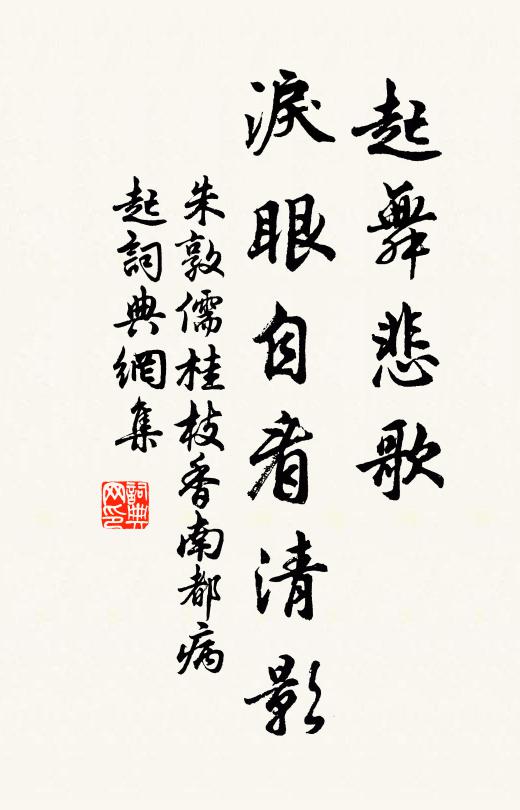 起舞悲歌
淚眼自看清影
朱敦儒桂枝香南都病
起詞典網集
詞典
网印